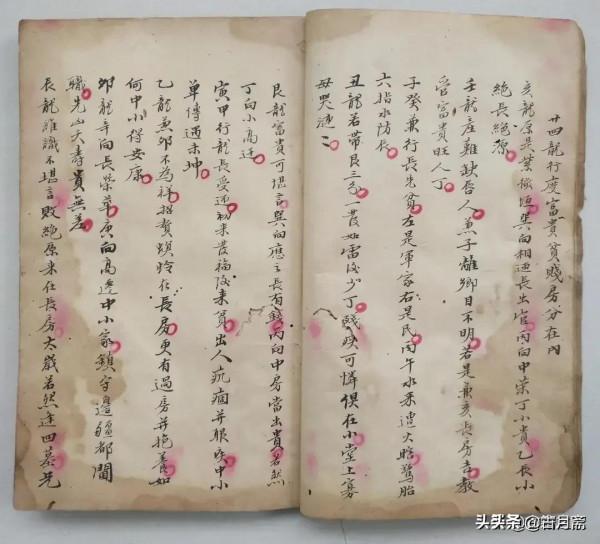 廿四龍行度富貴貧賤房分在內
亥龍原是紫微垣巽向相逢長出官丙向中榮丁小貴乙長小
絕長絕源
壬龍產難缺唇人兼子離鄉目不明若是兼亥長房吉教
官富貴旺人丁
子癸兼行長先貧左是軍家右是民丙午水來遭火瞎鴛胎
六指水防辰
丑龍若帶艮三分一發如雷後少丁殘疾可憐俱在小堂上寡
母哭漣二
艮龍富貴可堪言巽向應主長有錢丙向中房當出貴若然
丁向小高迁
寅甲行龍長受迍初来發福後来貧出人疯痼并眼疾中小
單傳通未坤
乙龍兼卯不為祥招贅螟蛉在長房更有過房并抱養如
何中小得安康
卯龍辛向長榮華庚向高遷中小家鎮守邊疆都閫
職先山大壽貴無差
辰龍誰識不堪言敗絕原来在長房太歲若然逢四墓先
头条@岀月斋